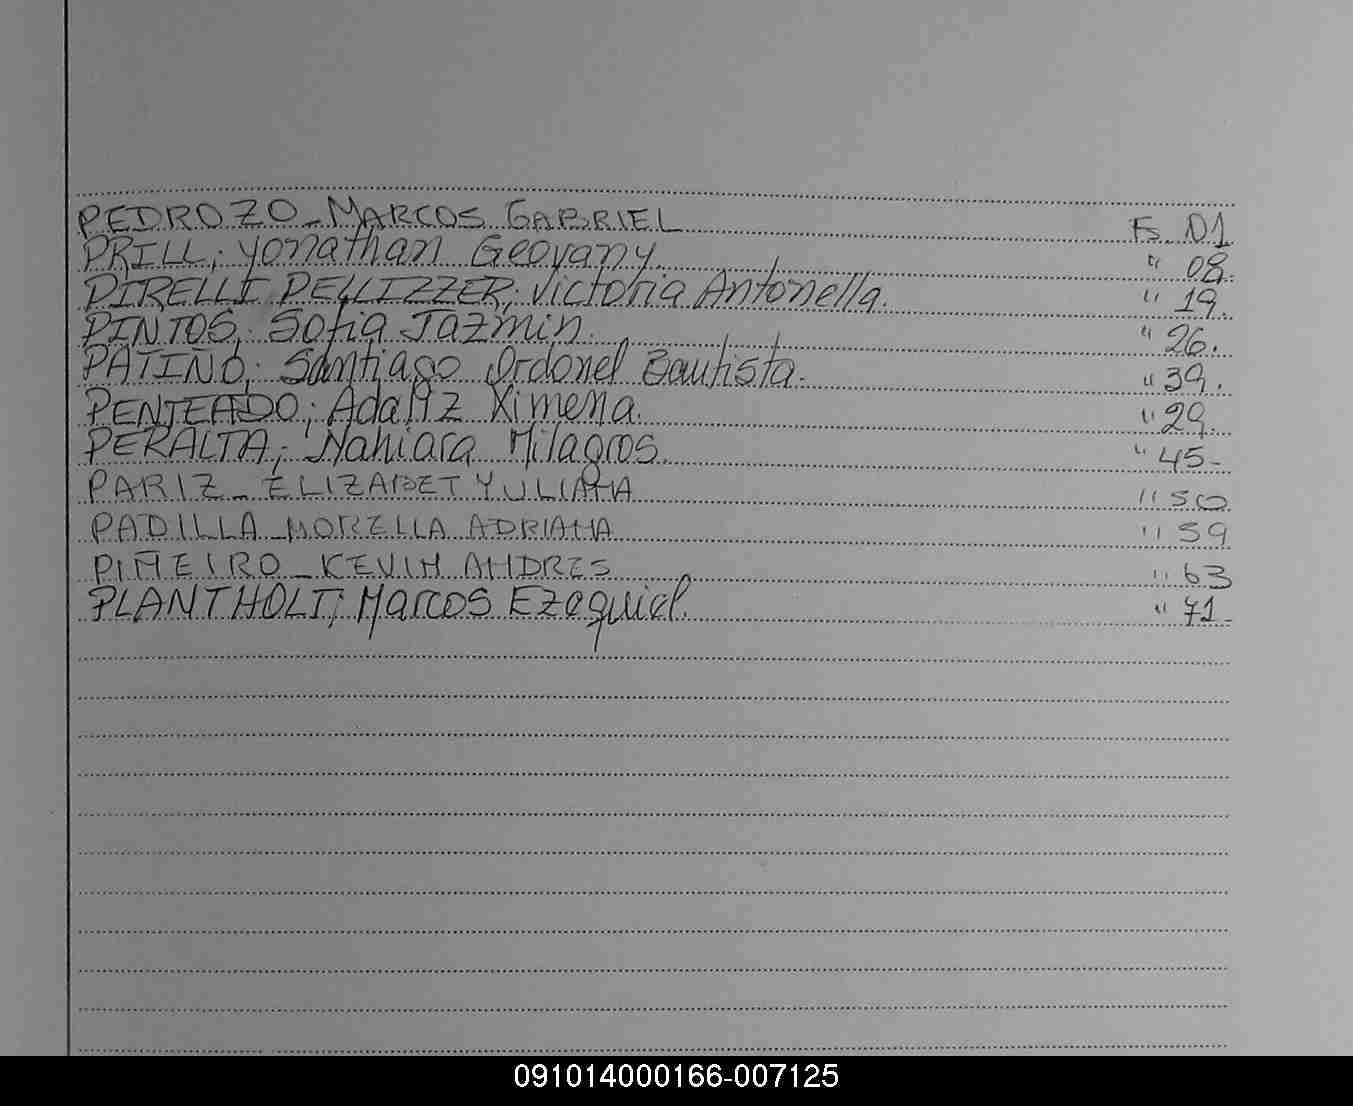 PEDROZO - MARCOS GABRIEL Fs. 01
PRILL; Yonathan Geovany. " 08.
PIRELLI PELLIZZER; Victoria Antonella. " 19.
PINTOS; Sofia Jazmin. " 26.
PATIÑO; Santiago Ordonel Bautista. " 39.
PENTEADO; Adaliz Ximena. " 29.
PERALTA; Nahiara Milagros. " 45-
PARIZ - ELIZABET YULIANA " 50
PADILLA - MORELLA ADRIANA " 59
PIÑEIRO - KEVIN ANDRES " 63
PLANTHOLT; Marcos Ezequiel. " 71-
091014000166-007125